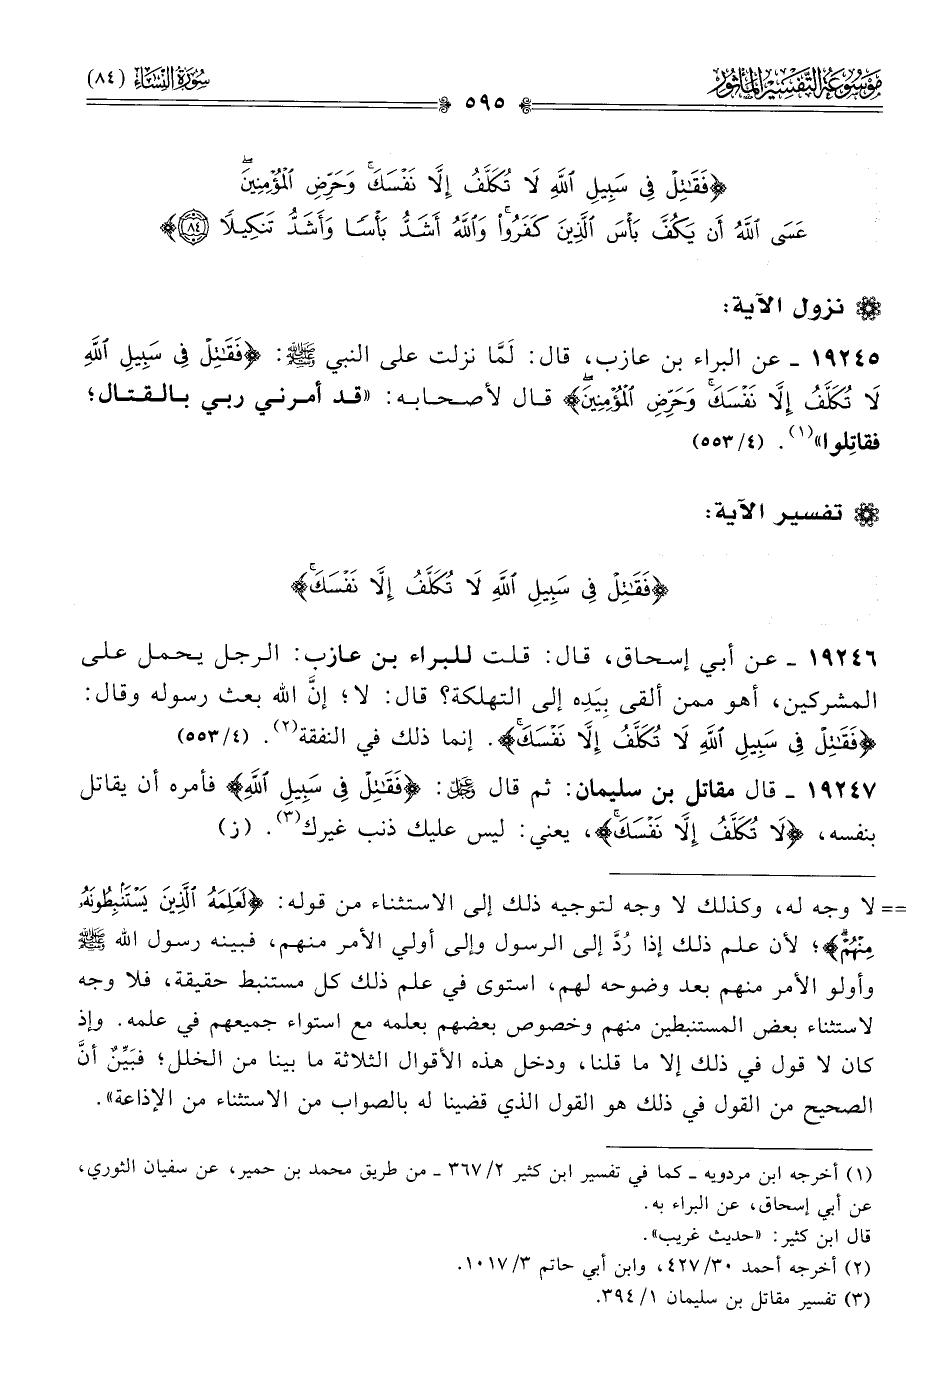 موسوعة التفسير المأثور
سورة النساء (٨٤)
٥٩٥
﴿فَقَٰتِلْ فِى سَبِيلِ ٱللَّهِ لَا تُكَلَّفُ إِلَّا نَفْسَكَۚ وَحَرِّضِ ٱلْمُؤْمِنِينَۖ
عَسَى ٱللَّهُ أَن يَكُفَّ بَأْسَ ٱلَّذِينَ كَفَرُوا۟ۚ وَٱللَّهُ أَشَدُّ بَأْسًا وَأَشَدُّ تَنكِيلًا ٨٤﴾
نزول الآية:
١٩٢٤٥ ـ عن البراء بن عازب، قال: لَمَّا نزلت على النبي ﷺ: ﴿فَقَٰتِلْ فِى سَبِيلِ ٱللَّهِ
لَا تُكَلَّفُ إِلَّا نَفْسَكَۚ وَحَرِّضِ ٱلْمُؤْمِنِينَۖ﴾ قال لأصحابه: «قد أمرني ربي بالقتال؛
فقاتِلوا»(١). (٤/ ٥٥٣)
تفسير الآية:
﴿فَقَٰتِلْ فِى سَبِيلِ ٱللَّهِ لَا تُكَلَّفُ إِلَّا نَفْسَكَۚ﴾
١٩٢٤٦ ـ عن أبي إسحاق، قال: قلت للبراء بن عازب: الرجل يحمل على
المشركين، أهو ممن ألقى بِيَدِه إلى التهلكة؟ قال: لا؛ إنَّ الله بعث رسوله وقال:
﴿فَقَٰتِلْ فِى سَبِيلِ ٱللَّهِ لَا تُكَلَّفُ إِلَّا نَفْسَكَۚ﴾. إنما ذلك في النفقة(٢). (٤/ ٥٥٣)
١٩٢٤٧ ـ قال مقاتل بن سليمان: ثم قال ﷻ: ﴿فَقَٰتِلْ فِى سَبِيلِ ٱللَّهِ﴾ فأمره أن يقاتل
بنفسه، ﴿لَا تُكَلَّفُ إِلَّا نَفْسَكَۚ﴾، يعني: ليس عليك ذنب غيرك(٣). (ز)
== لا وجه له، وكذلك لا وجه لتوجيه ذلك إلى الاستثناء من قوله: ﴿لَعَلِمَهُ ٱلَّذِينَ يَسْتَنۢبِطُونَهُۥ
مِنْهُمْۗ﴾؛ لأن علم ذلك إذا رُدَّ إلى الرسول وإلى أولي الأمر منهم، فبينه رسول الله ﷺ
وأولو الأمر منهم بعد وضوحه لهم، استوى في علم ذلك كل مستنبط حقيقة، فلا وجه
لاستثناء بعض المستنبطين منهم وخصوص بعضهم بعلمه مع استواء جميعهم في علمه. وإذ
كان لا قول في ذلك إلا ما قلنا، ودخل هذه الأقوال الثلاثة ما بينا من الخلل؛ فبَيِّنٌ أنَّ
الصحيح من القول في ذلك هو القول الذي قضينا له بالصواب من الاستثناء من الإذاعة».
(١) أخرجه ابن مردويه ـ كما في تفسير ابن كثير ٢/ ٣٦٧ ـ من طريق محمد بن حمير، عن سفيان الثوري،
عن أبي إسحاق، عن البراء به.
قال ابن كثير: «حديث غريب».
(٢) أخرجه أحمد ٣٠/ ٤٢٧، وابن أبي حاتم ٣/ ١٠١٧.
(٣) تفسير مقاتل بن سليمان ١/ ٣٩٤.